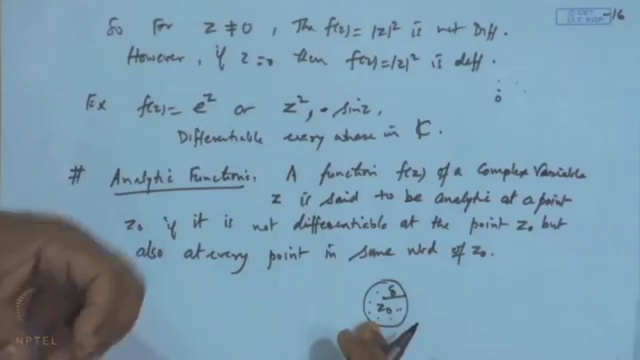 So For z ≠ 0, The f(z) = |z|² is not Diff.
However, if z=0 then f(z) = |z|² is diff.
0
Ex f(z) = e^z or z², sin z,
Differentiable every where in ℂ.
# Analytic Function: A function f(z) of a complex variable
z is said to be analytic at a point
z₀ if it is not differentiable at the point z₀ but
also at every point in some nbd of z₀.
δ
z₀
NPTEL